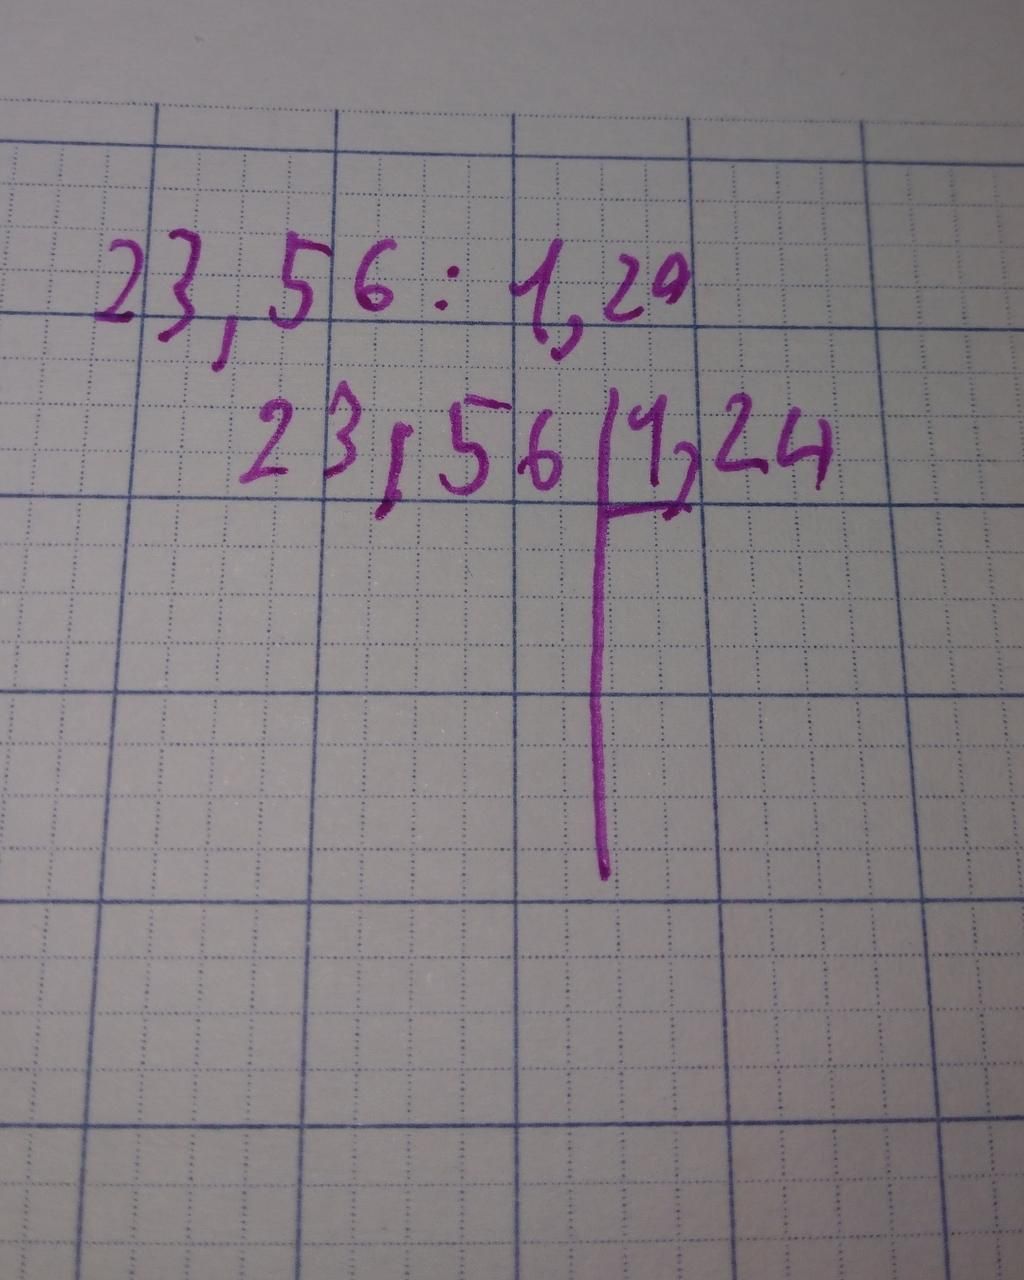 23,56 : 1,29
23,56 1,24